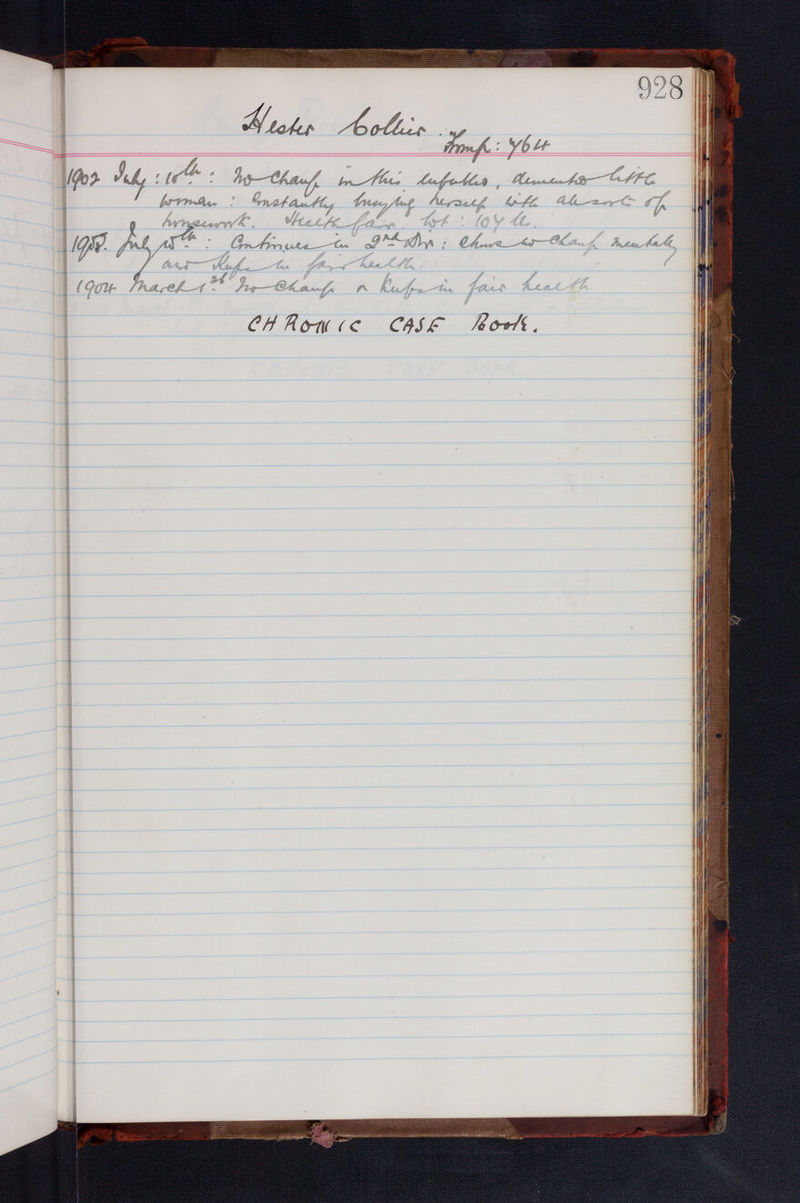 928
Hester Collier. From p: 764
1902 July: 10th: No change in this enfeebled, demented little
woman: Constantly busying herself with all sorts of
housework. Health fair. Wt: 107 lb.
1903. July 10th: Continues in 2nd: Shews no change mentally
and keeps in fair health.
1904 March 1st No change & keeps in fair health
CHRONIC CASE Book.